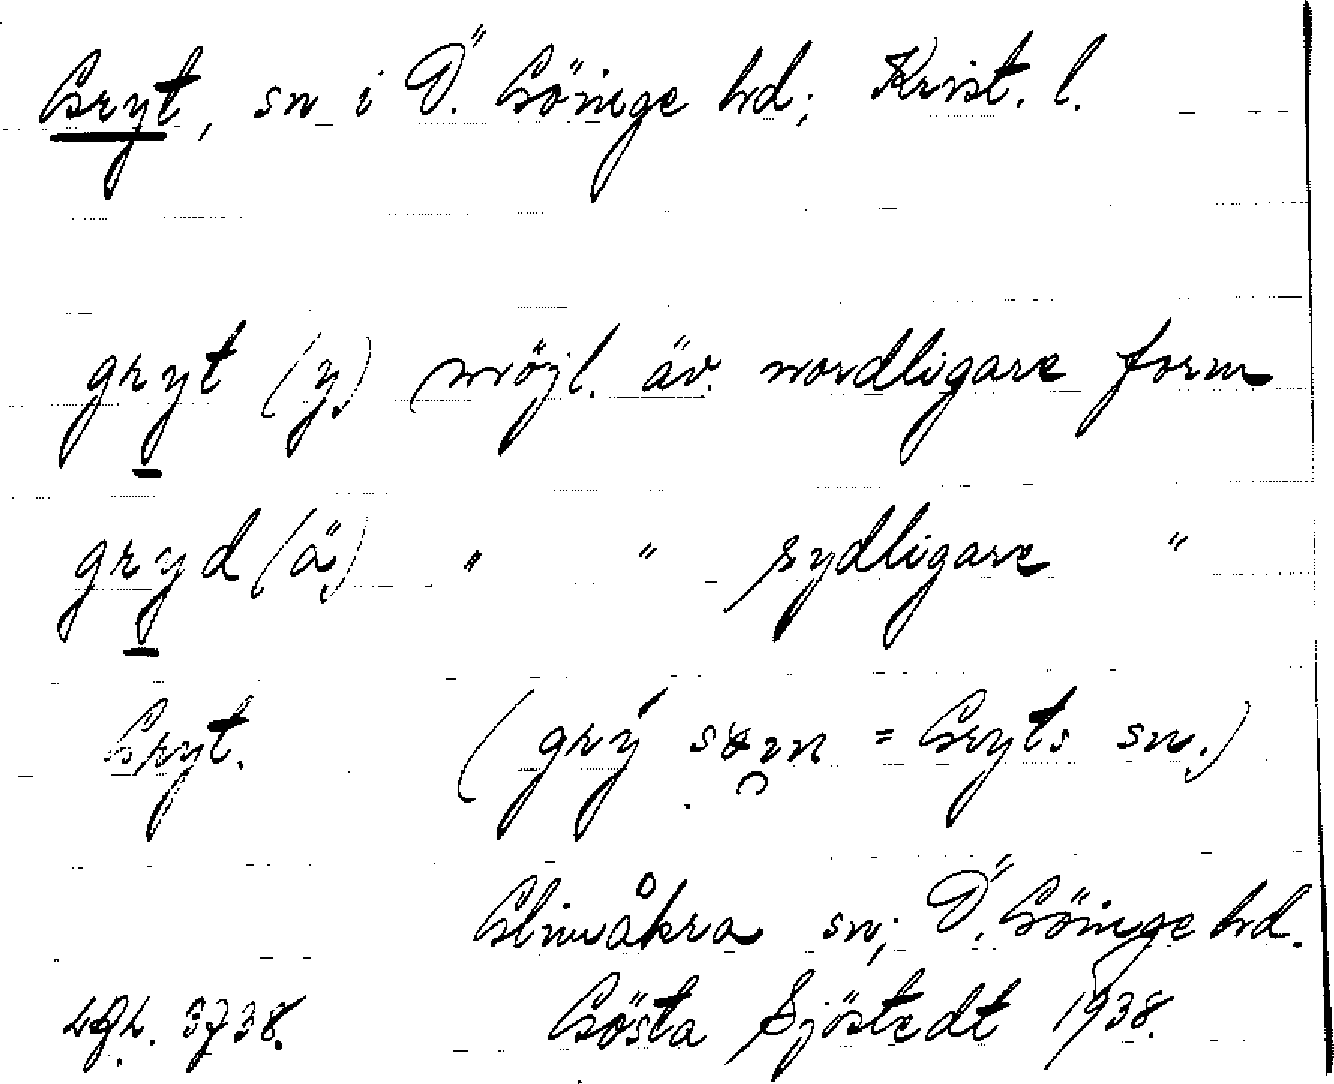 Gryt, sn i Ö. Göinge hd; Krist. l.
gryt (y) möjl. äv. nordligare form
gryd (ä) " " sydligare "
Gryt. (grý = Gryts sn.)
Glimåkra sn; Ö. Göinge hd.
Gösta Sjöstedt 1938.